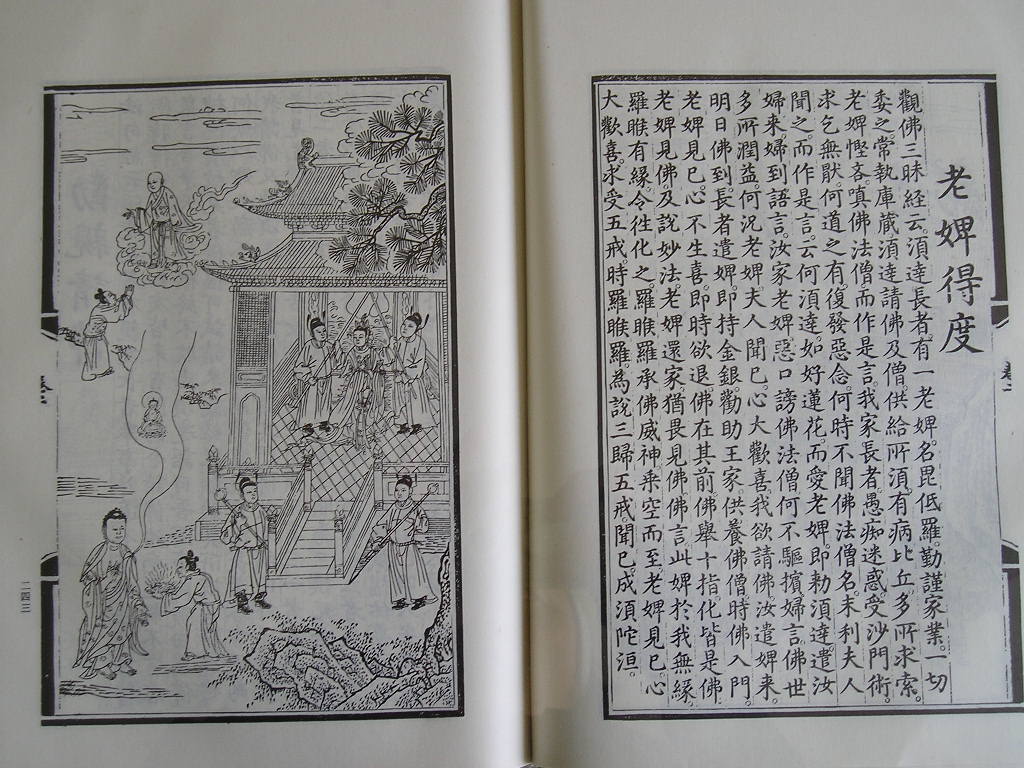 老婢得度
觀佛三昧經云。須達長者。有一老婢。名毘低羅。勤謹家業。一切
委之。常執庫藏。須達請佛及僧。供給所須。有病比丘。多所求索。
老婢慳吝。嗔佛法僧。而作是言。我家長者。愚痴迷惑。受沙門術。
求乞無厭。何道之有。復發惡念。何時不聞佛法僧名。末利夫人
聞之。而作是言云。何須達。如好蓮花。而受老婢。即勅須達。遣汝
婦來。婦到語言。汝家老婢。惡口謗佛法僧。何不驅擯。婦言。佛世
多所潤益。何況老婢。夫人聞已。心大歡喜。我欲請佛。汝遣婢來。
明日佛到。長者遣婢。即持金銀。勸助王家。供養佛僧。時佛入門。
老婢見已。心不生喜。即時欲退。佛在其前。佛舉十指。化皆是佛。
老婢見佛。及說妙法。老婢還家。猶畏見佛。佛言。此婢於我無緣。
羅睺有緣。令往化之。羅睺羅承佛威神。乘空而至。老婢見已。心
大歡喜。求受五戒。時羅睺羅。為說三歸五戒。聞已成須陀洹。
二四三